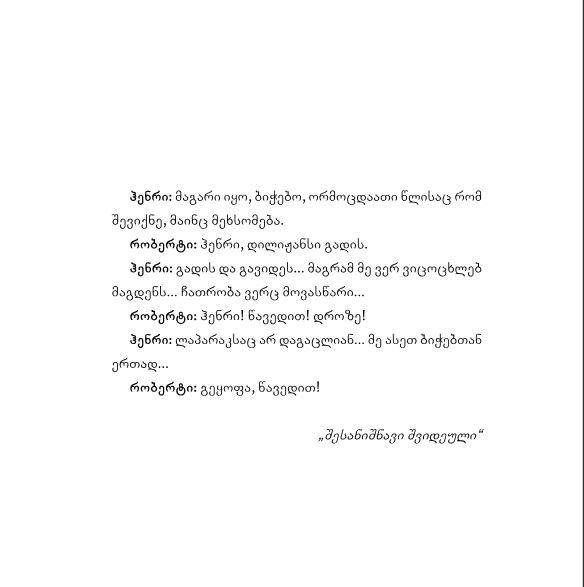 ჰენრი: მაგარი იყო, ბიჭებო, ორმოცდაათი წლისაც რომ
შევიქნე, მაინც მეხსომება.
რობერტი: ჰენრი, დილიჟანსი გადის.
ჰენრი: გადის და გავიდეს... მაგრამ მე ვერ ვიცოცხლებ
მაგდენს... ჩათრობა ვერც მოვასწარი...
რობერტი: ჰენრი! წავედით! დროზე!
ჰენრი: ლაპარაკსაც არ დაგაცლიან... მე ასეთ ბიჭებთან
ერთად...
რობერტი: გეყოფა, წავედით!
„შესანიშნავი შვიდეული“